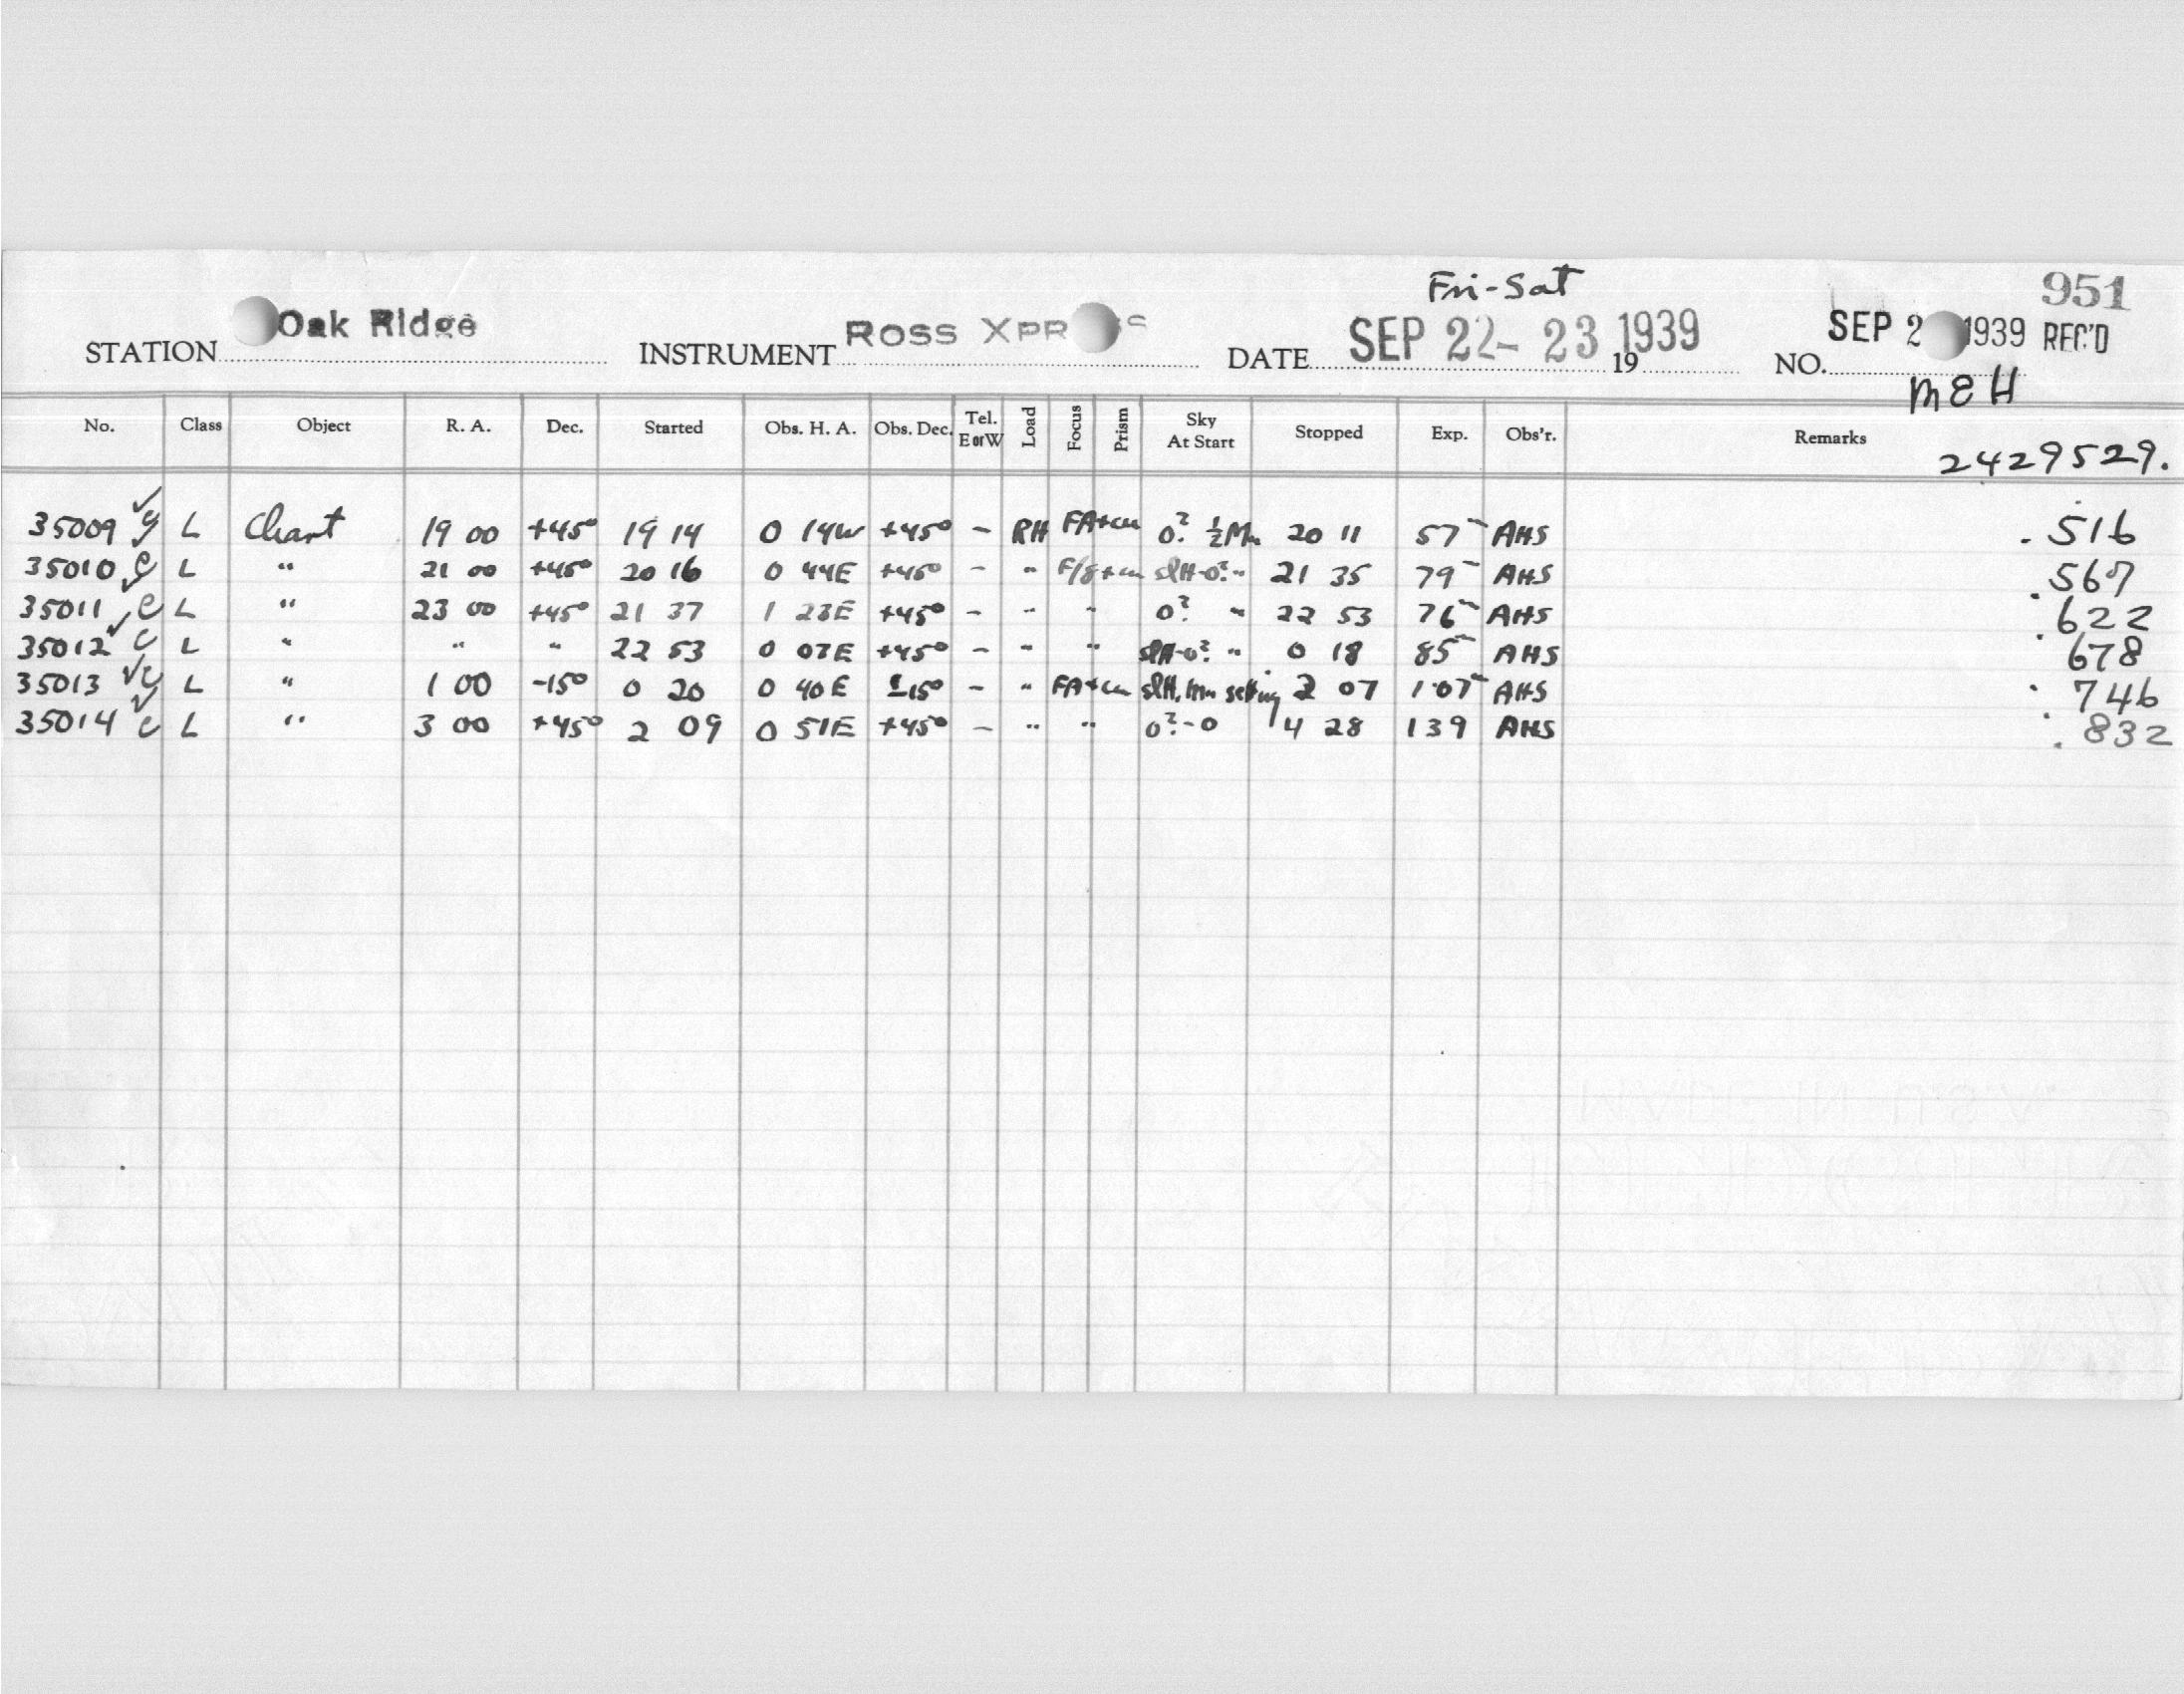 Fri-Sat
951
STATION Oak Ridge INSTRUMENT ROSS XPR SS DATE SEP 22-23 1939 19 NO. SEP 2 1939 REC'D
MEH
No. Class Object R. A. Dec. Started Obs. H. A. Obs. Dec. Tel. E or W Load Focus Prism Sky At Start Stopped Exp. Obs'r. Remarks
2429529.
35009 L Chart 19 00 +45° 19 14 0 14W +45° - RH FA+cu 0? ½ Mn 20 11 57 AHS .516
35010 L " 21 00 +45° 20 16 0 44E +45° - " F/8+cu slH-0? " 21 35 79 AHS .567
35011 L " 23 00 +45° 21 37 1 23E +45° - " " 0? " 22 53 76 AHS .622
35012 L " " " 22 53 0 07E +45° - " " slH-0? " 0 18 85 AHS .678
35013 L " 1 00 -15° 0 20 0 40E -15° - " FA+cu slH, Mn setting 2 07 107 AHS .746
35014 L " 3 00 +45° 2 09 0 51E +45° - " " 0?-0 4 28 139 AHS .832